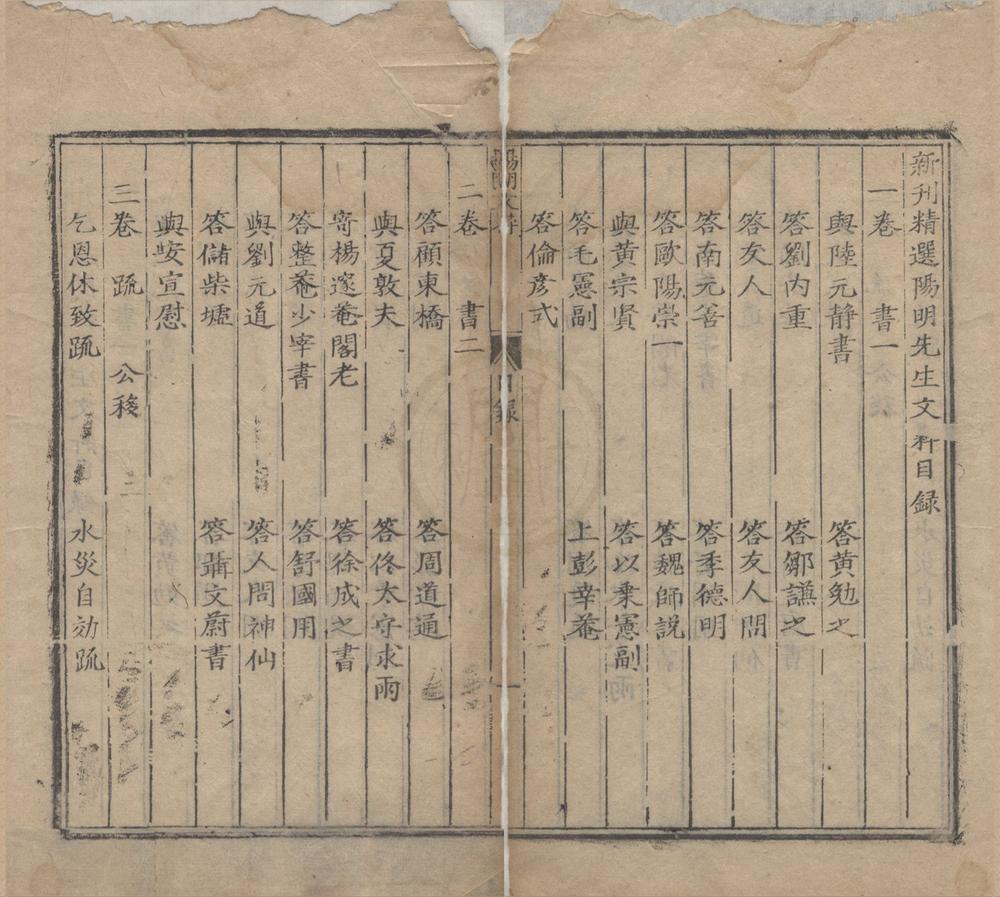 新刊精選陽明先生文粹目録
一卷　書一
與陸元静書　答黄勉之
答劉内重　答鄒謙之
答友人　答友人問
答南元善　答季德明
答歐陽崇一　答魏師説
與黄宗賢　答以乗憲副
答毛憲副　上彭幸菴
答倫彦式
陽明文粹　目録　一
二卷　書二
答顧東橋　答周道通
與夏敦夫　答佟太守求雨
寄楊邃菴閣老　答徐成之書
答整菴少宰書　答舒國用
與劉元道　答人問神仙
答儲柴墟　答聶文蔚書
與安宣慰
三卷　疏　公移
乞恩休致疏　水災自効疏